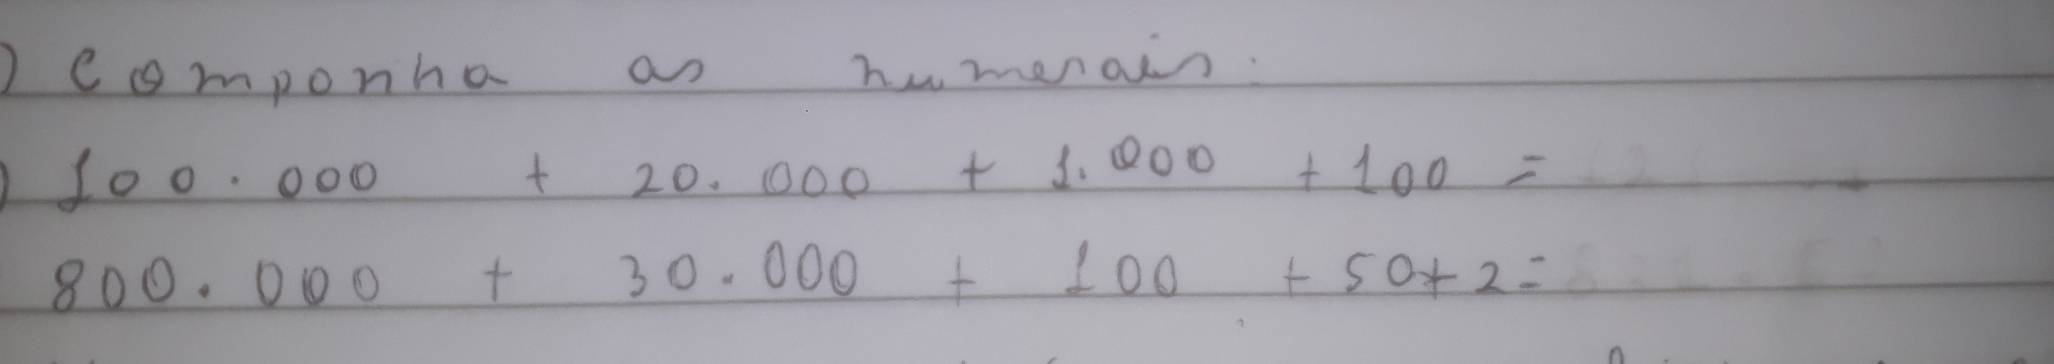 ) Componha as numerais:
) 100.000 + 20.000 + 1.000 + 100 =
800.000 + 30.000 + 100 + 50+2=